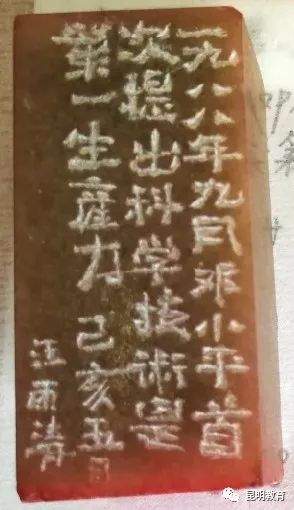 一九八八年九月邓小平首
次提出科学技術是
第一生産力 己亥五月
江雨清
昆明教育